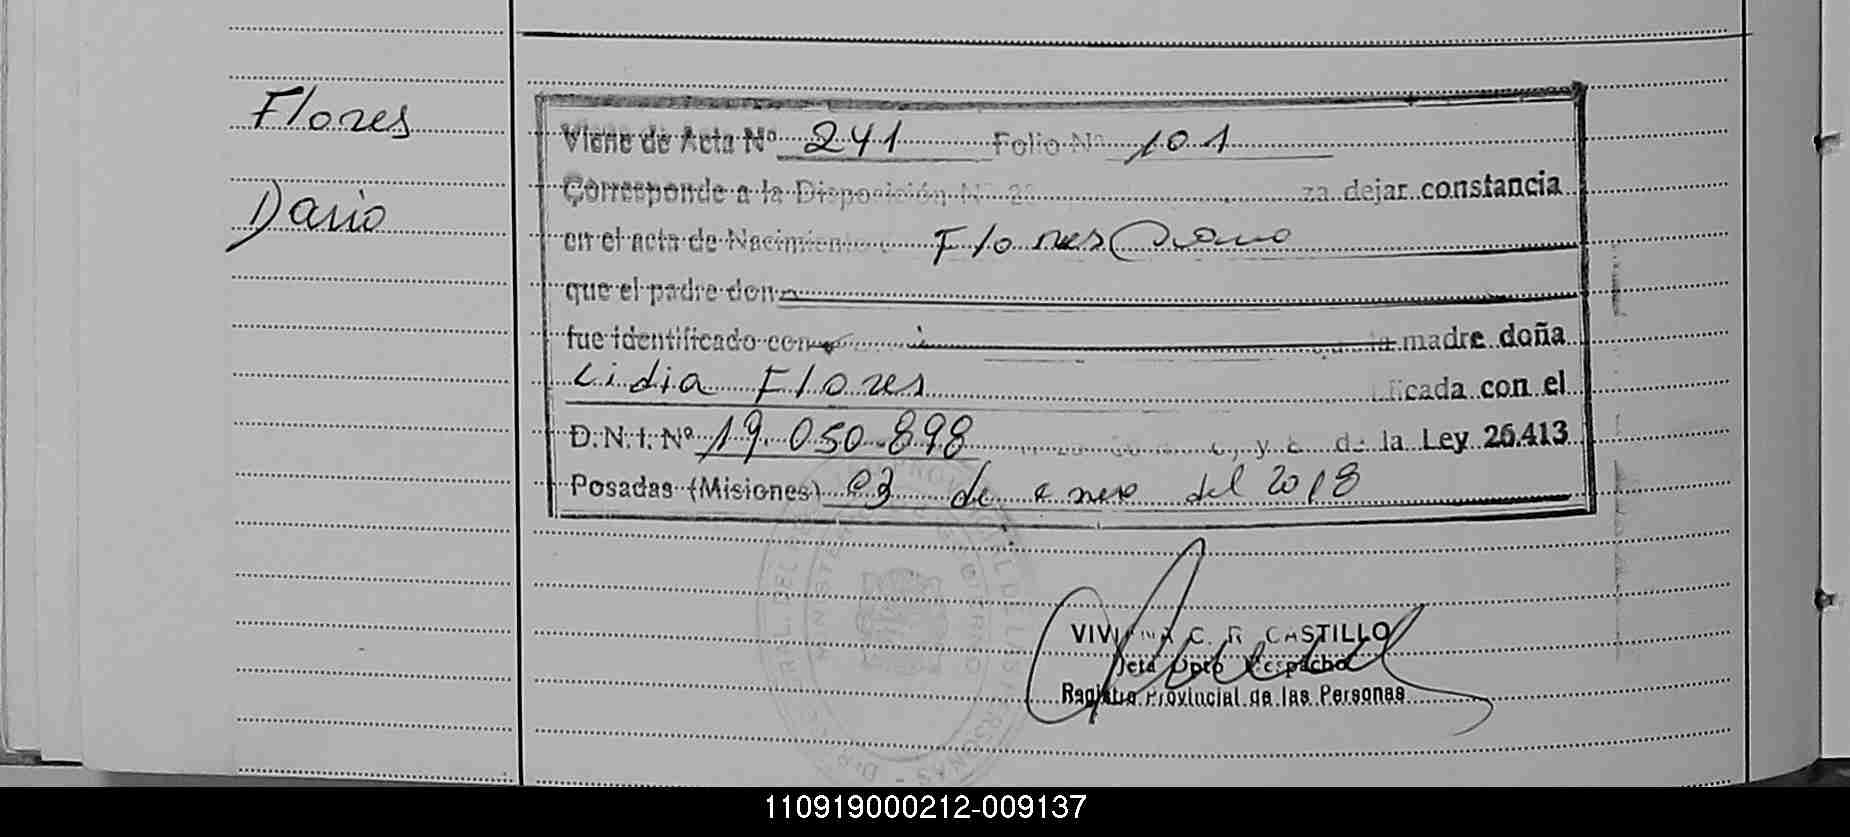 Flores
Dario
Viene de Acta Nº 241 Folio Nº 101
Corresponde a la Disposición Nº za dejar constancia
en el acta de Nacimiento Flores Dario
que el padre don
fue identificado con la madre doña
Lidia Flores ificada con el
D.N.I. Nº 19.050.898 y c de la Ley 26.413
Posadas (Misiones) 03 de enero del 2018
VIVIANA C. R. CASTILLO
Jefa Dpto Despacho
Registro Provincial de las Personas
110919000212-009137